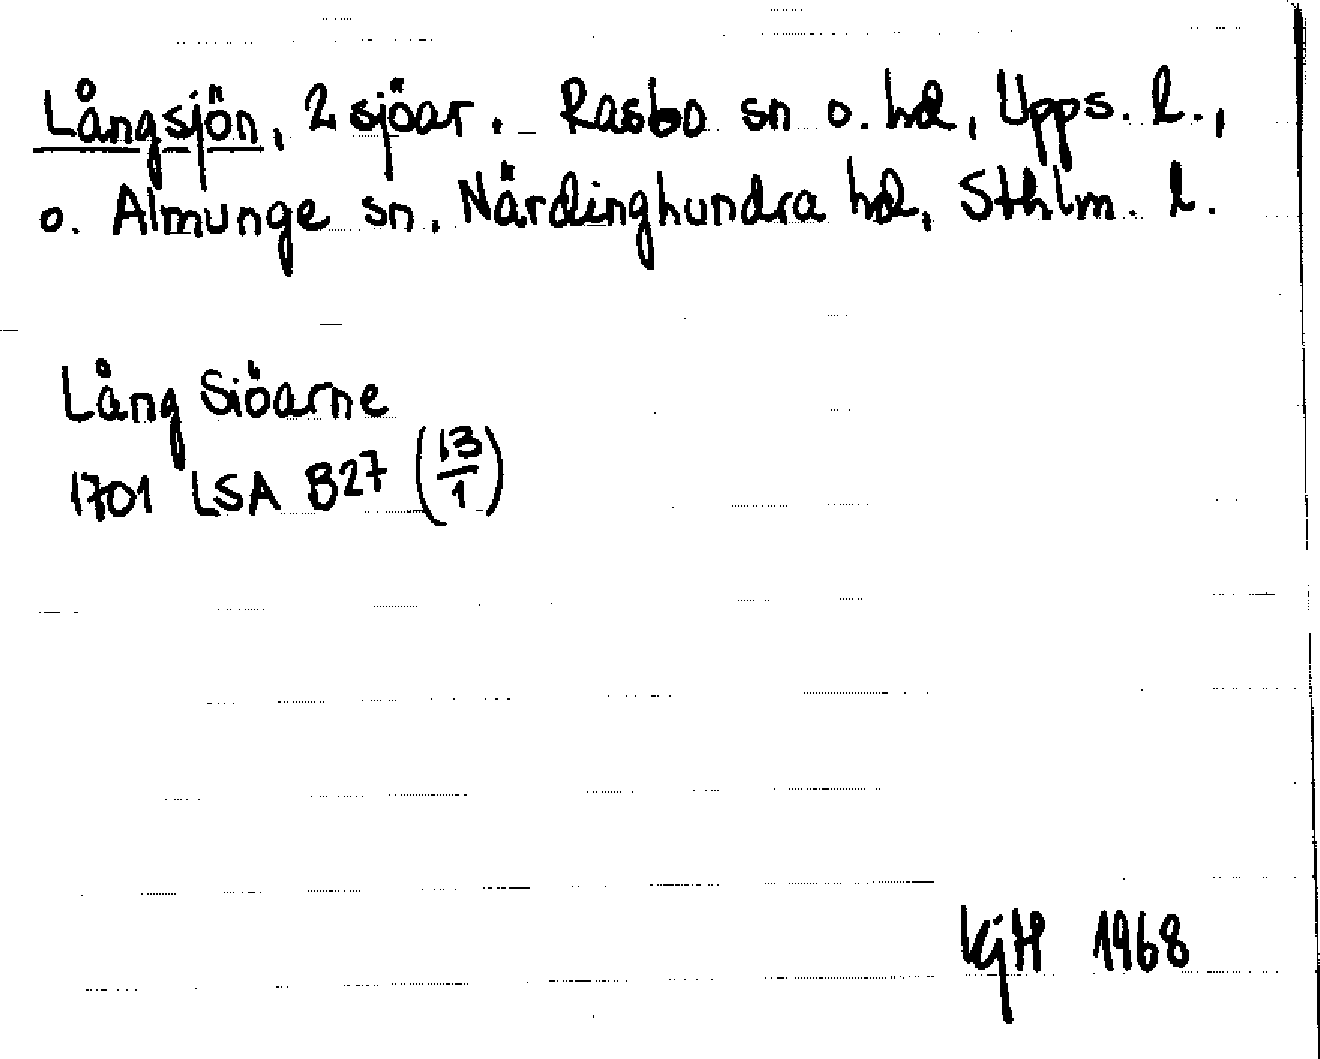 Långsjön, 2 sjöar. Rasbo sn o. hd, Upps. l.,
o. Almunge sn, Närdinghundra hd, Sthlm. l.
Lång Siöarne
1701 LSA B27 (13/1)
KjH 1968